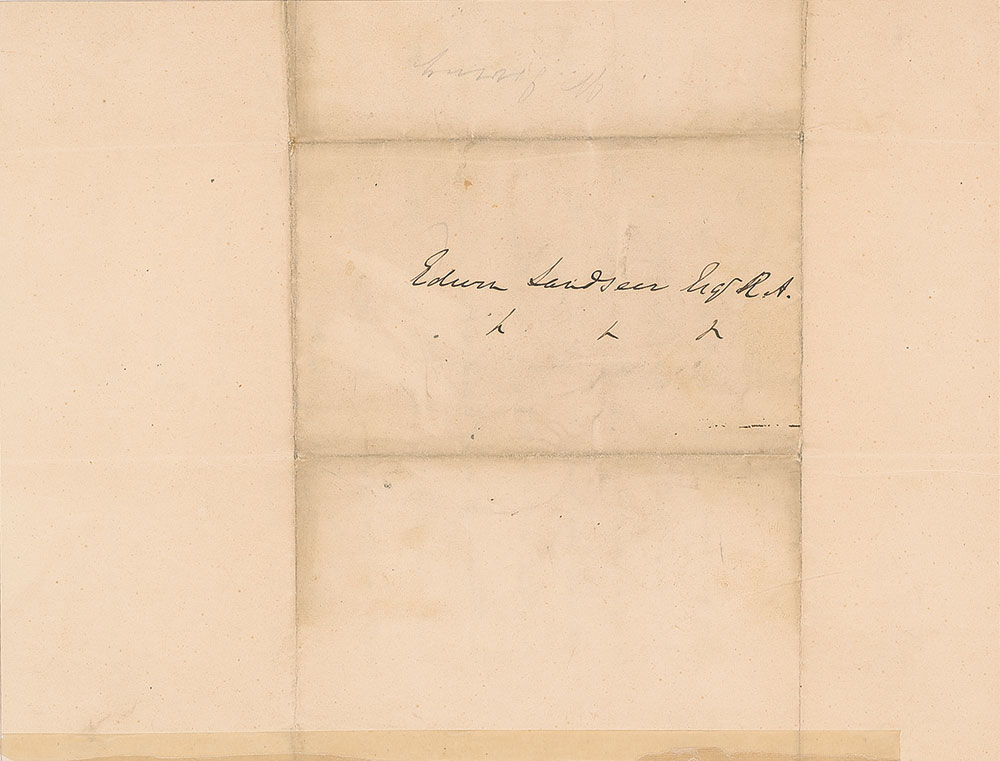 Edwin Landseer Esqr R.A.